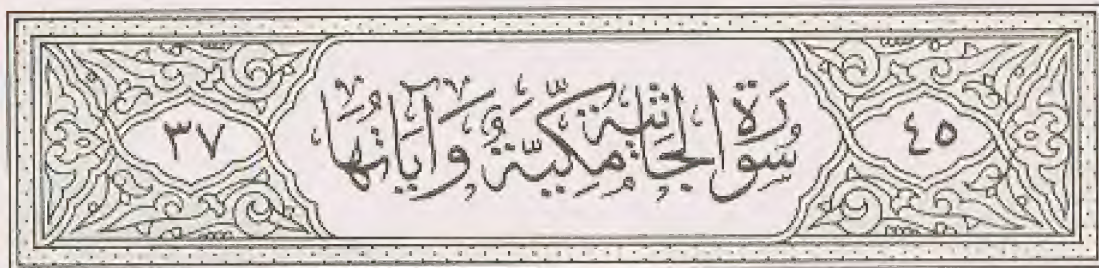 ٤٥ سُورَةُ الجَاثِيَةِ مَكِّيَّةٌ وَآيَاتُهَا ٣٧